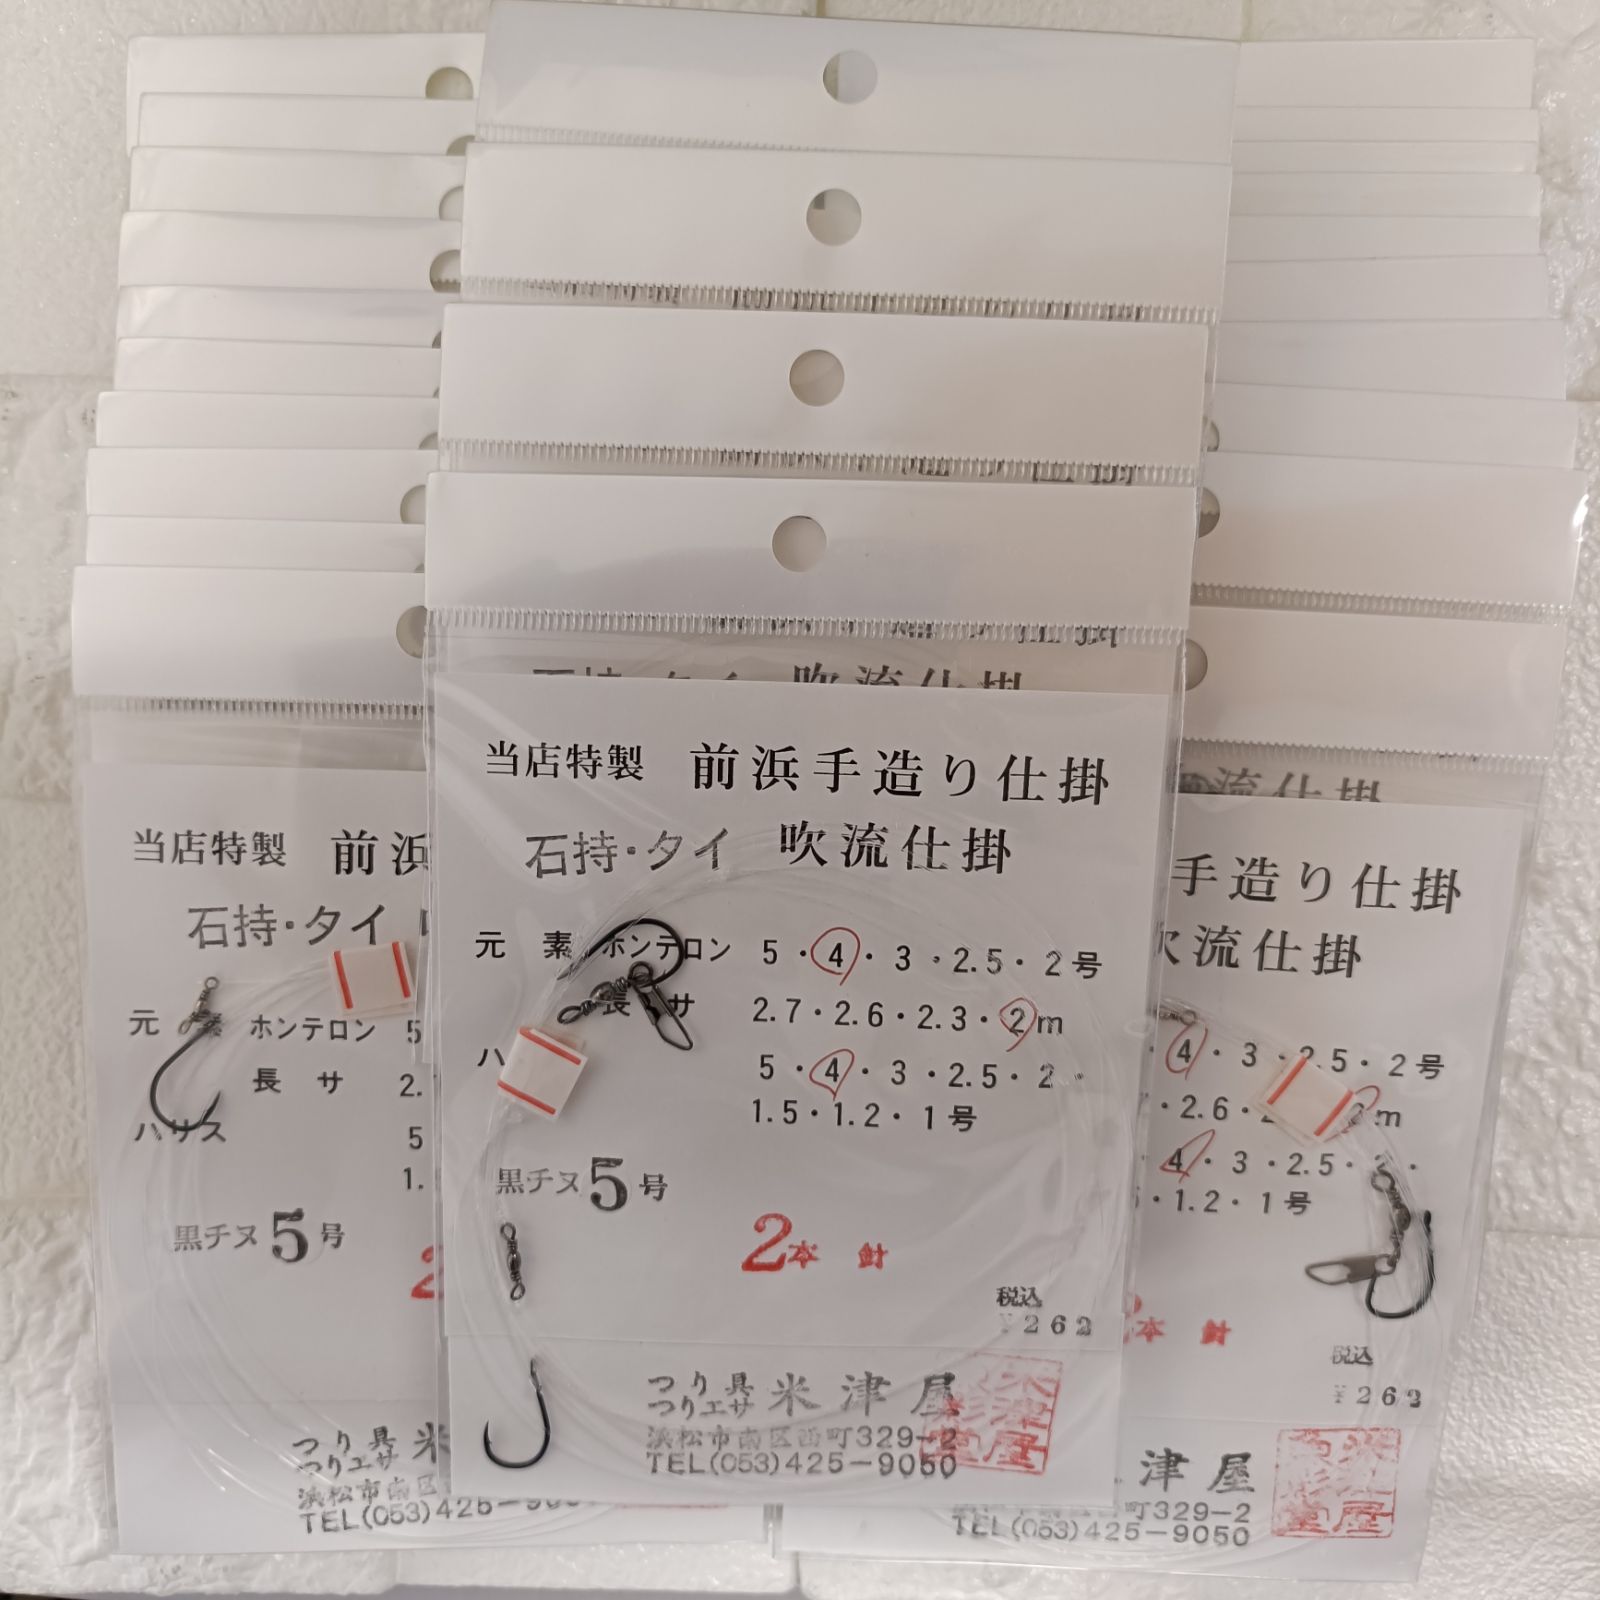 当店特製 前浜手造り仕掛
石持・タイ 吹流仕掛
元 素 ホンテロン 5・4・3・2.5・2号
長 サ 2.7・2.6・2.3・2m
ハ 5・4・3・2.5・2・
1.5・1.2・1号
黒チヌ 5号
2本 針
税込
¥262
つり具
つりエサ 米津屋
浜松市南区西町329-2
TEL(053)425-9050
当店特製 前浜
石持・タイ
元 素 ホンテロン 5
長 サ 2.
ハリス 5
1.
黒チヌ 5号
2
つり具
つりエサ 米
浜松市南
TEL(053)425-90
流仕掛
手造り仕掛
吹流仕掛
4・3・2.5・2号
・2.6・2 2m
4・3・2.5・2・
・1.2・1号
本 針
税込
¥262
津屋
町329-2
TEL(053)425-9050